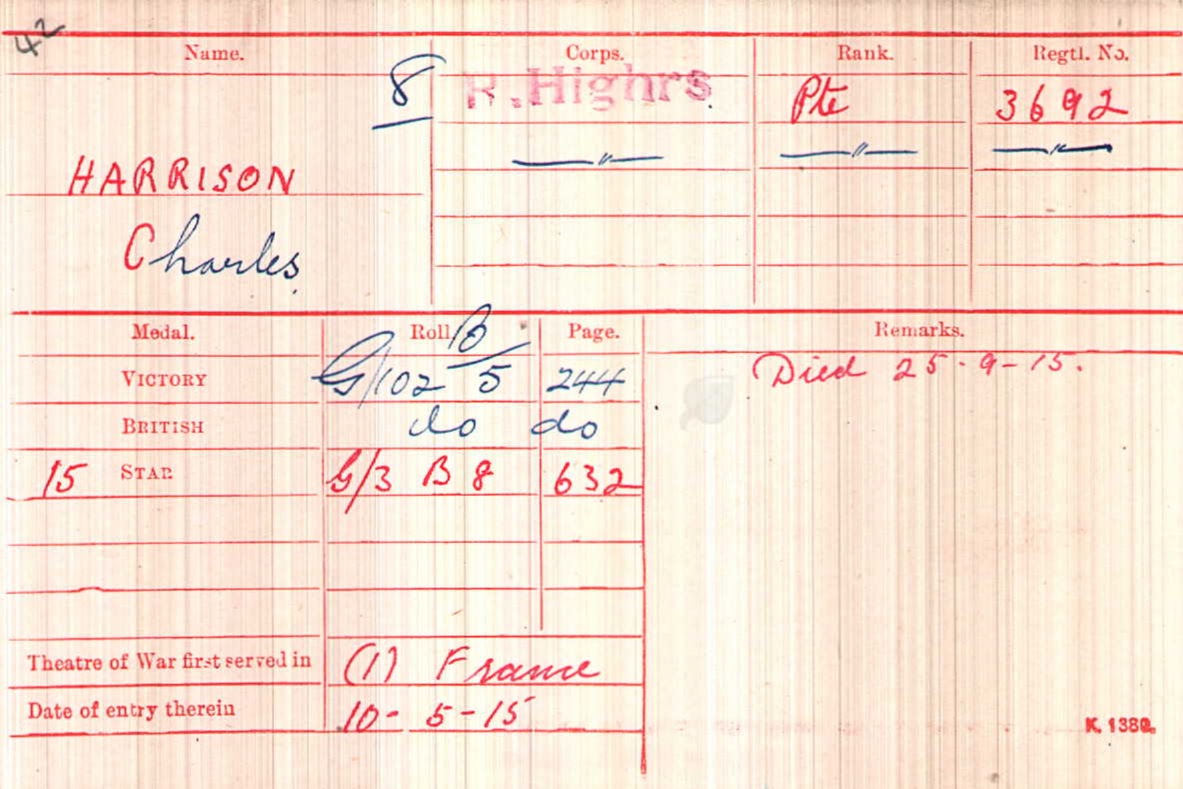 42
Name. Corps. Rank. Regtl. No.
8 R.Highrs Pte 3692
—"— —"— —"—
HARRISON
Charles
Medal. Roll Page. Remarks.
VICTORY G/102 B5 244 Died 25-9-15.
BRITISH do do
15 STAR G/3 B 8 632
Theatre of War first served in (1) France
Date of entry therein 10-5-15
K. 1380.